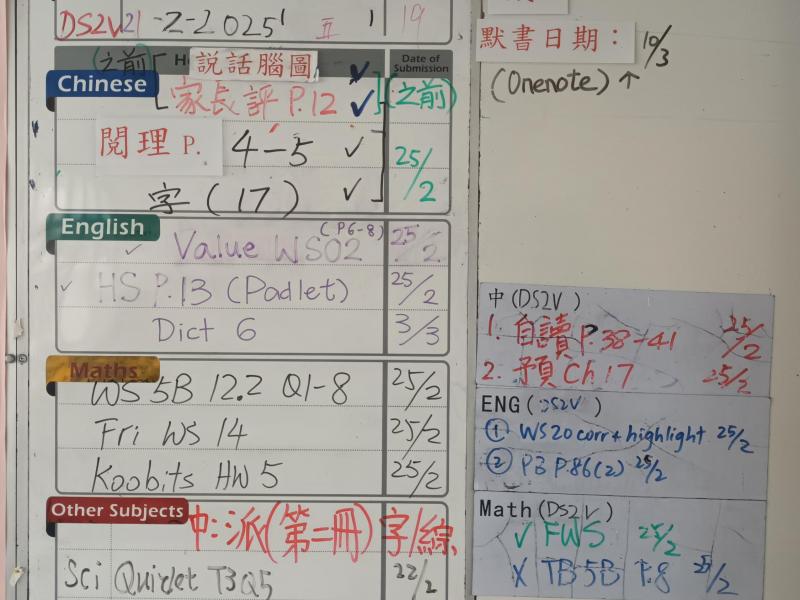 DS2V 21-2-2025 五 19
Chinese
Date of Submission
(之前)
説話腦圖
家長評 P.12 ✓ (之前)
閱理 P. 4-5 ✓ 25/2
字(17) ✓
English
✓ Value WS02 (P6-8) 25/2
✓ HS P.13 (Padlet) 25/2
Dict 6 3/3
Maths
WS 5B 12.2 Q1-8 25/2
Fri WS 14 25/2
Koobits HW 5 25/2
Other Subjects
中:派(第二冊)字/綜
Sci Quizlet T3Q5 22/2
默書日期: 10/3
(Onenote) ↑
中(DS2V)
1. 自讀 P.38-41 25/2
2. 預 Ch 17 25/2
ENG (DS2V)
① WS20 corr + highlight 25/2
② PB P.86(2) 25/2
Math (DS2V)
✓ FWS 25/2
X TB 5B P.8 25/2